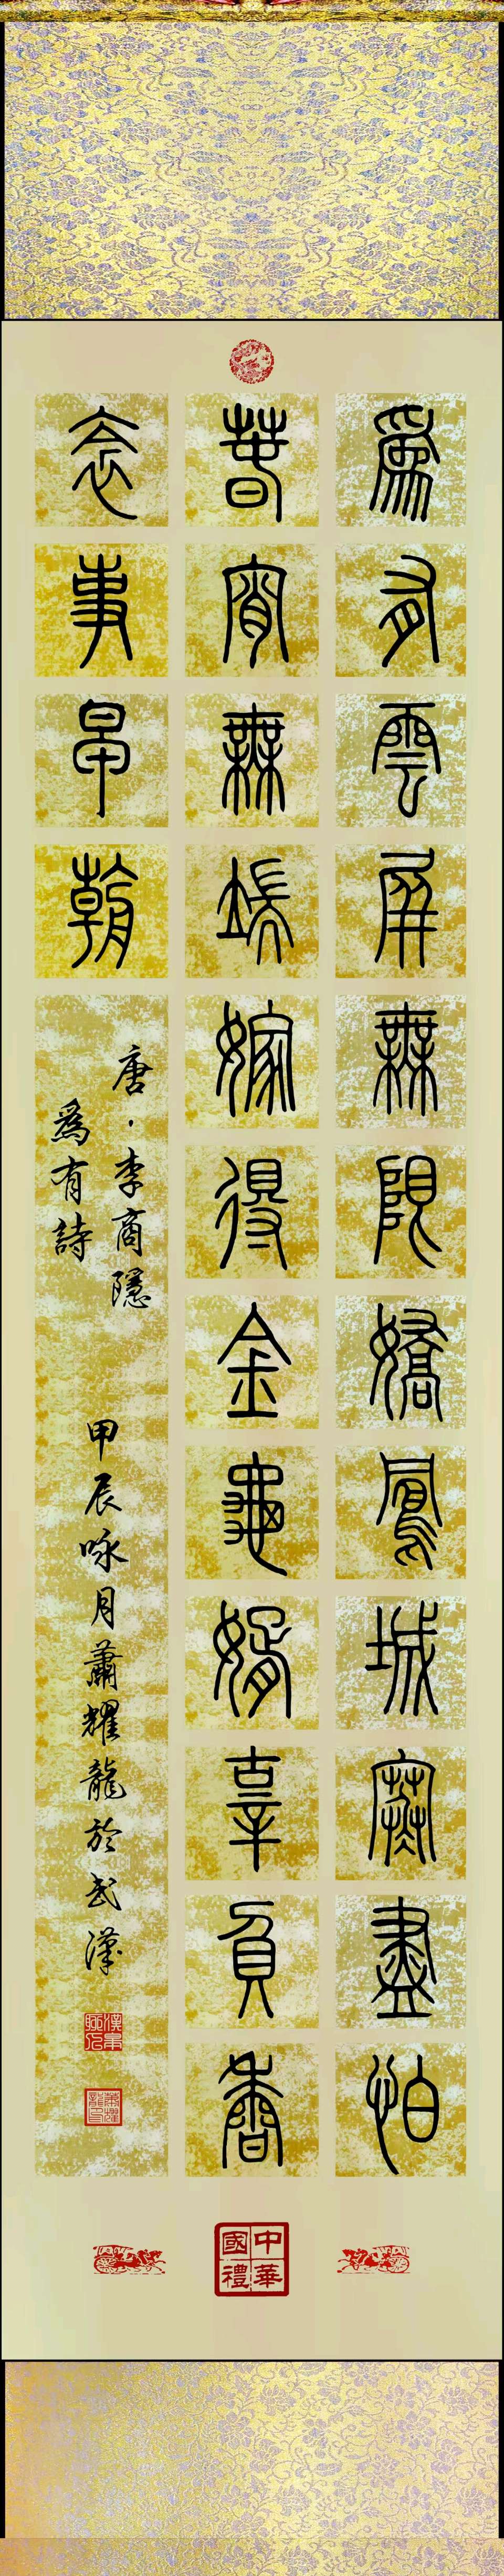 爲有雲屏無限嬌鳳城寒盡怕
春宵無端嫁得金龜婿辜負香
衾事早朝
唐·李商隱
爲有詩
甲辰咏月蕭耀龍於武漢
中華國禮